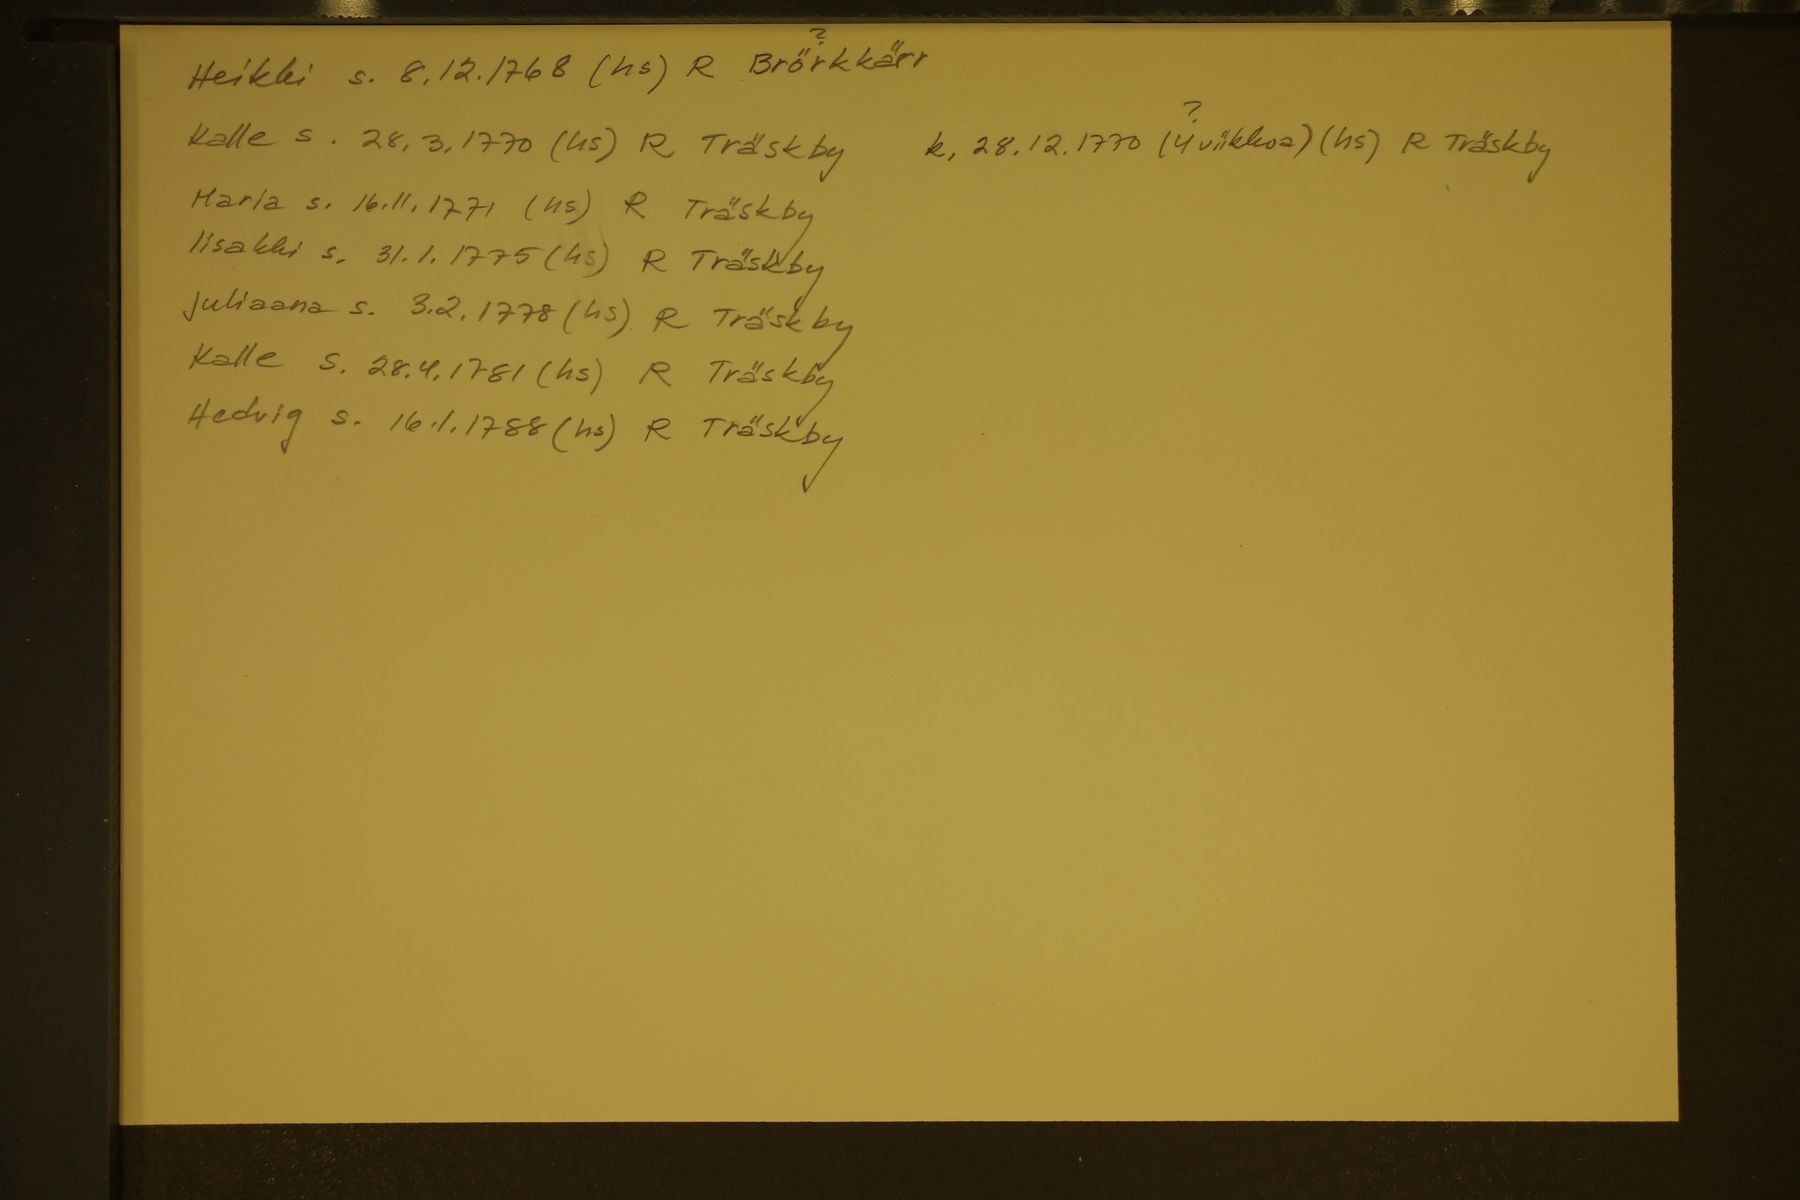 Heikki s. 8.12.1768 (hs) R Brörkkärr ?
Kalle s. 28.3.1770 (hs) R Träskby k. 28.12.1770 (4 viikkoa) ? (hs) R Träskby
Maria s. 16.11.1771 (hs) R Träskby
Iisakki s. 31.1.1775 (hs) R Träskby
Juliaana s. 3.2.1778 (hs) R Träskby
Kalle s. 28.4.1781 (hs) R Träskby
Hedvig s. 16.1.1788 (hs) R Träskby